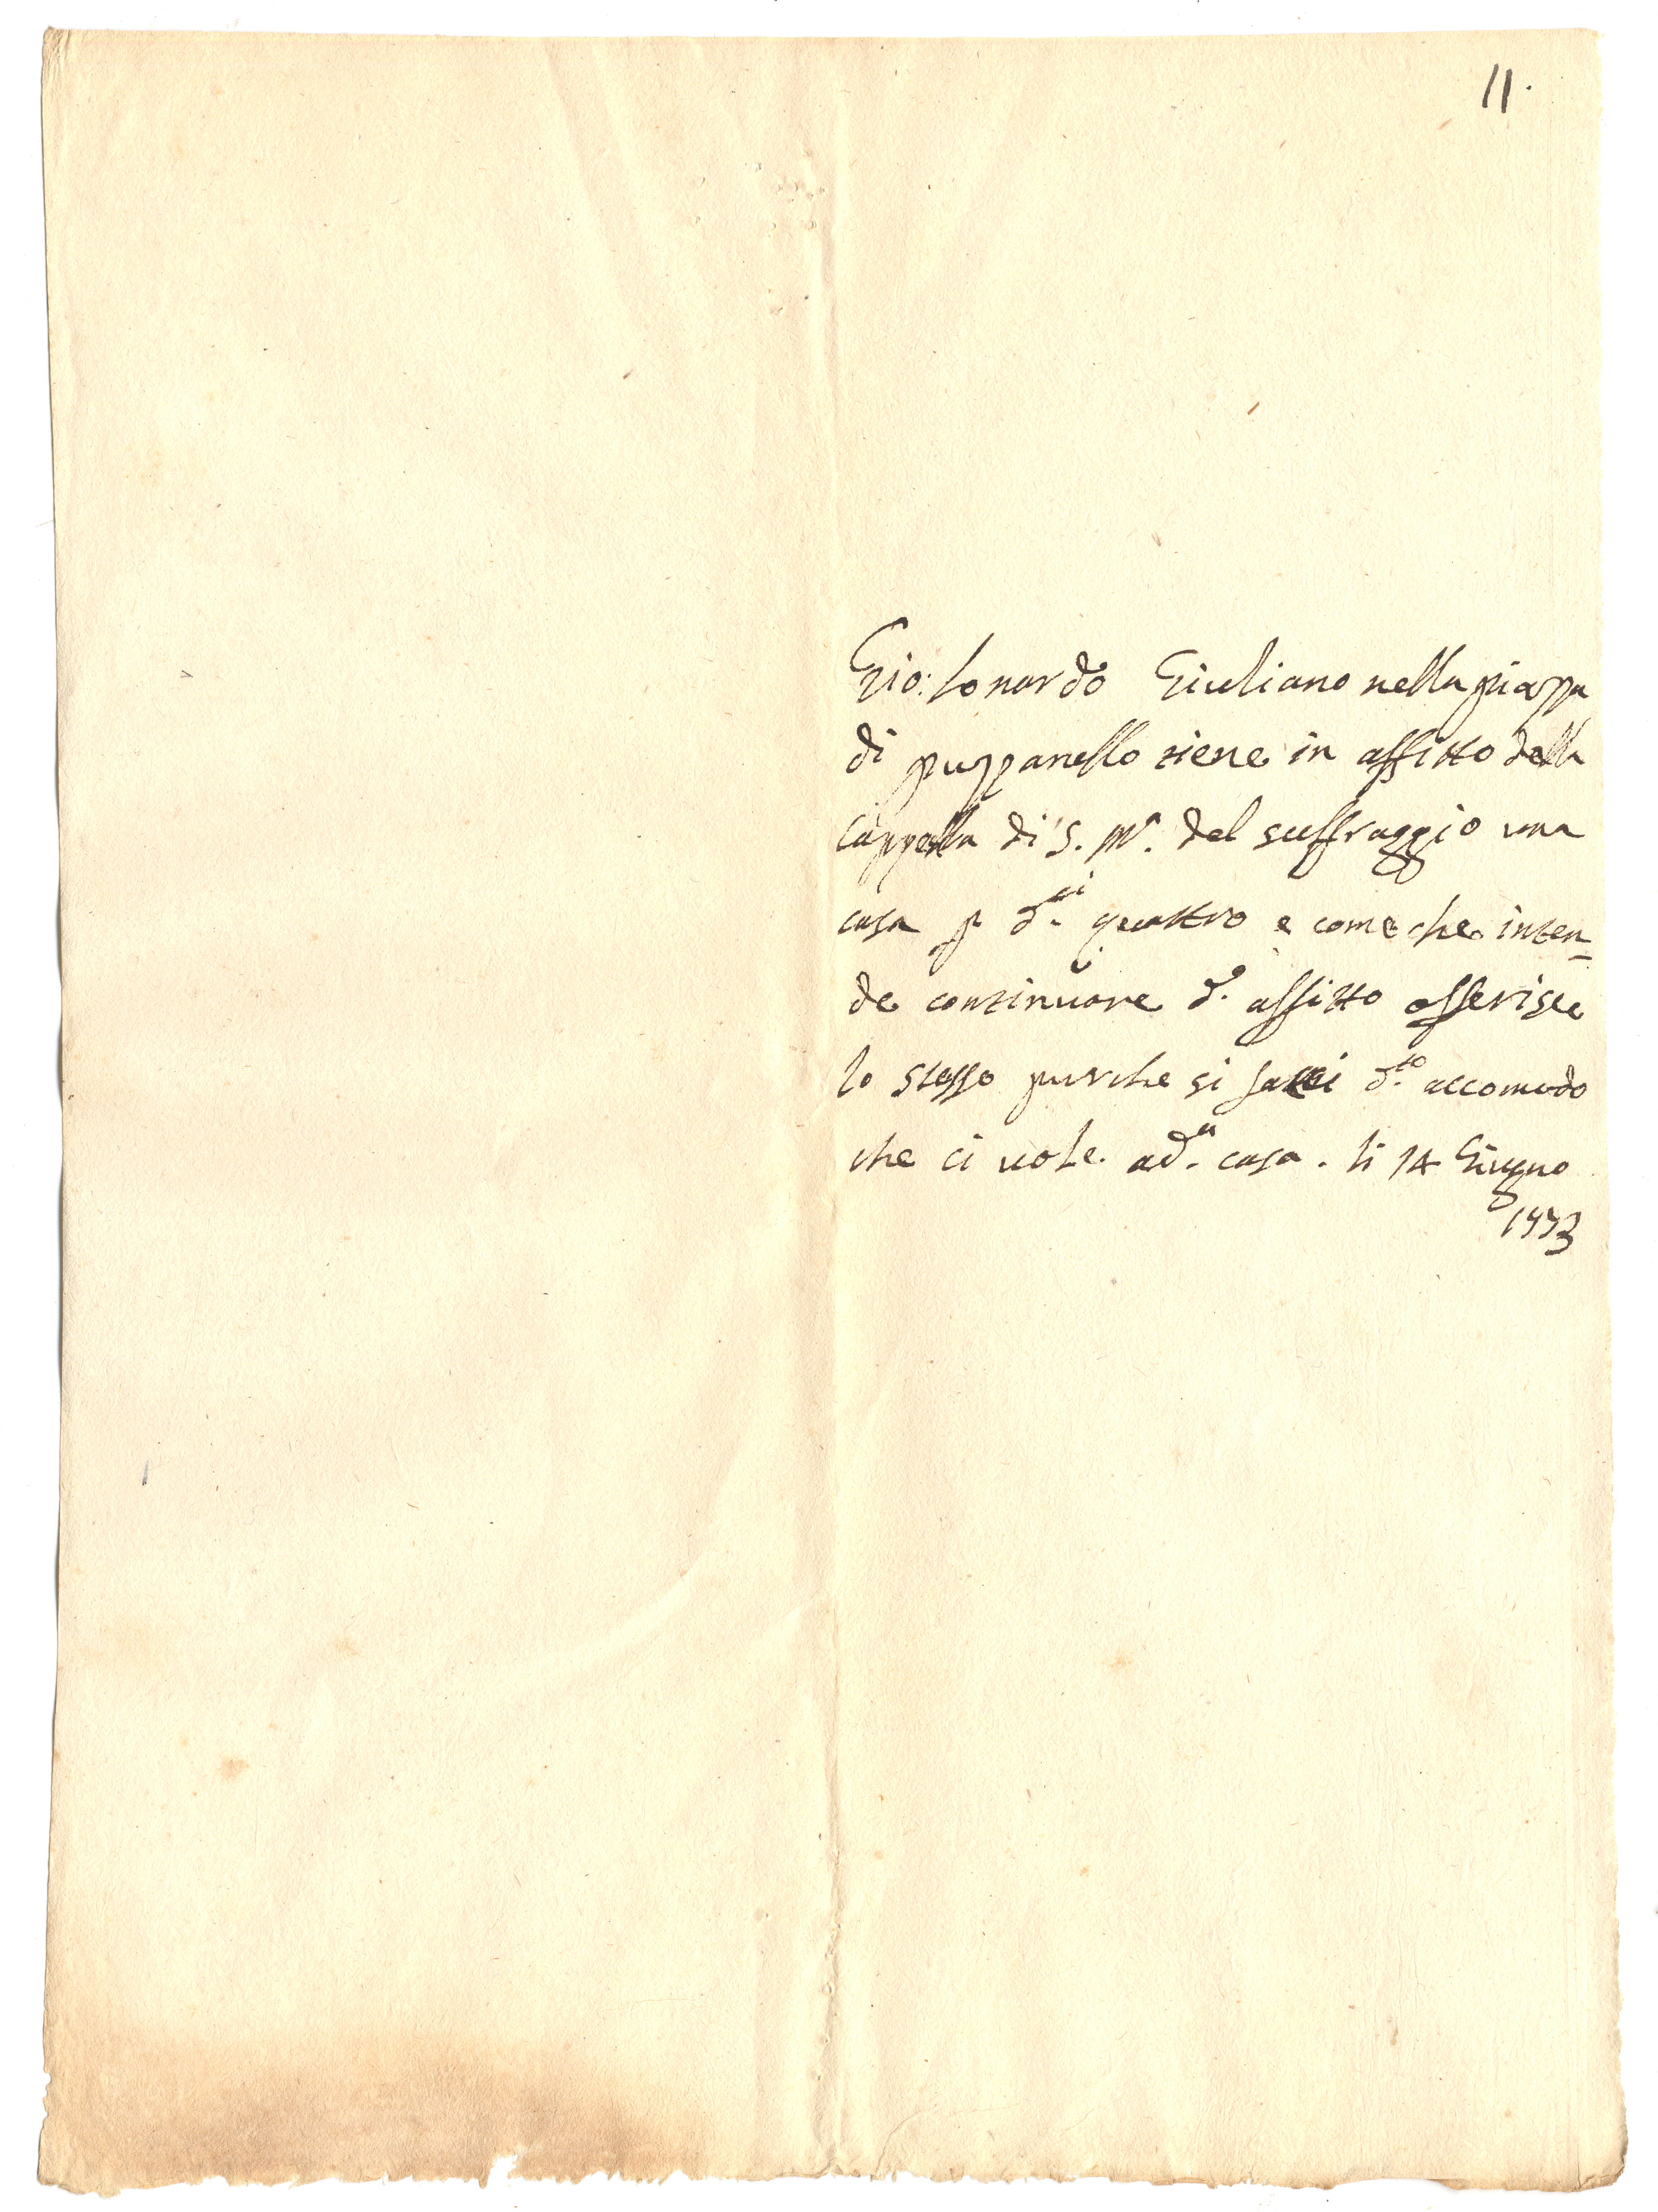 11.
Gio: Lonardo Giuliano nella piazza
di puzzanello tiene in affitto della
Cappella di S. Mª. del suffraggio una
casa p d.ti quattro e come che inten=
de continuare d.º affitto offerisce
lo stesso purche si facci d.to accomodo
che ci vole ad.ª casa. li 14 Giugno
1773